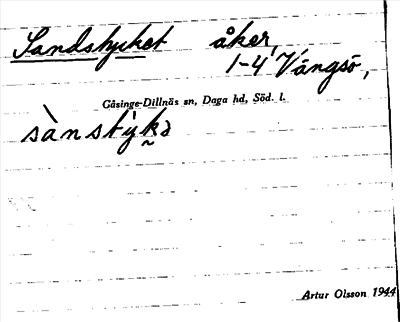 Sandstycket åker,
1-4 Vängsö,
Gåsinge-Dillnäs sn, Daga hd, Söd. l.
sànstỳkə
Artur Olsson 1944